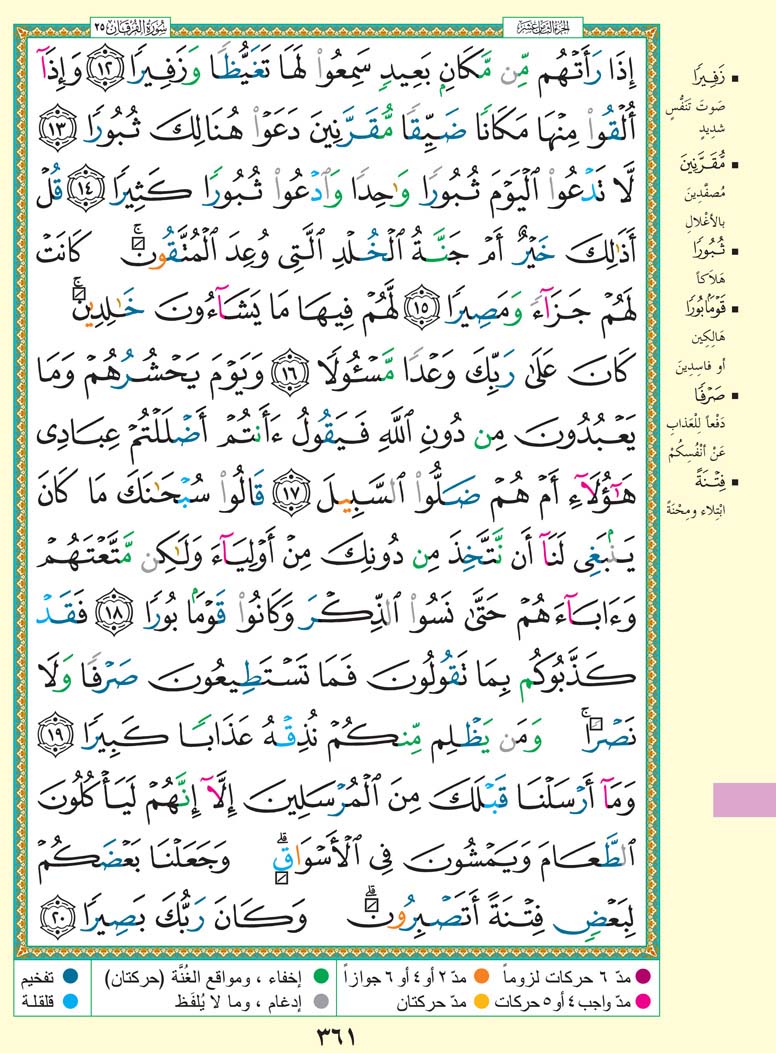 سُورَةُ الفُرْقَانِ ٢٥
الجُزْءُ الثَّامِنَ عَشَرَ
إِذَا رَأَتْهُم مِّن مَّكَانِۭ بَعِيدٍ سَمِعُوا۟ لَهَا تَغَيُّظًا وَزَفِيرًا ١٢ وَإِذَآ
أُلْقُوا۟ مِنْهَا مَكَانًا ضَيِّقًا مُّقَرَّنِينَ دَعَوْا۟ هُنَالِكَ ثُبُورًا ١٣
لَّا تَدْعُوا۟ الْيَوْمَ ثُبُورًا وَٰحِدًا وَادْعُوا۟ ثُبُورًا كَثِيرًا ١٤ قُلْ
أَذَٰلِكَ خَيْرٌ أَمْ جَنَّةُ الْخُلْدِ الَّتِى وُعِدَ الْمُتَّقُونَ ۚ كَانَتْ
لَهُمْ جَزَآءً وَمَصِيرًا ١٥ لَّهُمْ فِيهَا مَا يَشَآءُونَ خَٰلِدِينَ ۚ
كَانَ عَلَىٰ رَبِّكَ وَعْدًا مَّسْـُٔولًا ١٦ وَيَوْمَ يَحْشُرُهُمْ وَمَا
يَعْبُدُونَ مِن دُونِ اللَّهِ فَيَقُولُ ءَأَنتُمْ أَضْلَلْتُمْ عِبَادِى
هَٰٓؤُلَآءِ أَمْ هُمْ ضَلُّوا۟ السَّبِيلَ ١٧ قَالُوا۟ سُبْحَٰنَكَ مَا كَانَ
يَنۢبَغِى لَنَآ أَن نَّتَّخِذَ مِن دُونِكَ مِنْ أَوْلِيَآءَ وَلَٰكِن مَّتَّعْتَهُمْ
وَءَابَآءَهُمْ حَتَّىٰ نَسُوا۟ الذِّكْرَ وَكَانُوا۟ قَوْمًۢا بُورًا ١٨ فَقَدْ
كَذَّبُوكُم بِمَا تَقُولُونَ فَمَا تَسْتَطِيعُونَ صَرْفًا وَلَا
نَصْرًا ۚ وَمَن يَظْلِم مِّنكُمْ نُذِقْهُ عَذَابًا كَبِيرًا ١٩
وَمَآ أَرْسَلْنَا قَبْلَكَ مِنَ الْمُرْسَلِينَ إِلَّآ إِنَّهُمْ لَيَأْكُلُونَ
الطَّعَامَ وَيَمْشُونَ فِى الْأَسْوَاقِ ۗ وَجَعَلْنَا بَعْضَكُمْ
لِبَعْضٍ فِتْنَةً أَتَصْبِرُونَ ۗ وَكَانَ رَبُّكَ بَصِيرًا ٢٠
▪ زَفِيرًا
صَوتَ تَنَفُّسٍ
شديدٍ
▪ مُّقَرَّنِينَ
مُصفَّدِينَ
بالأغْلالِ
▪ ثُبُورًا
هَلاكاً
▪ قَوْمًۢا بُورًا
هَالِكِين
أو فاسِدِينَ
▪ صَرْفًا
دَفْعاً لِلْعَذابِ
عَنْ أنْفُسِكُمْ
▪ فِتْنَةً
ابْتِلاء ومِحْنَةً
مدّ ٦ حركات لزوماً
مدّ ٢ أو ٤ أو ٦ جوازاً
إخفاء ، ومواقع الغُنَّة (حركتان)
تفخيم
مدّ واجب ٤ أو ٥ حركات
مدّ حركتان
إدغام ، وما لا يُلفَظ
قلقلة
٣٦١